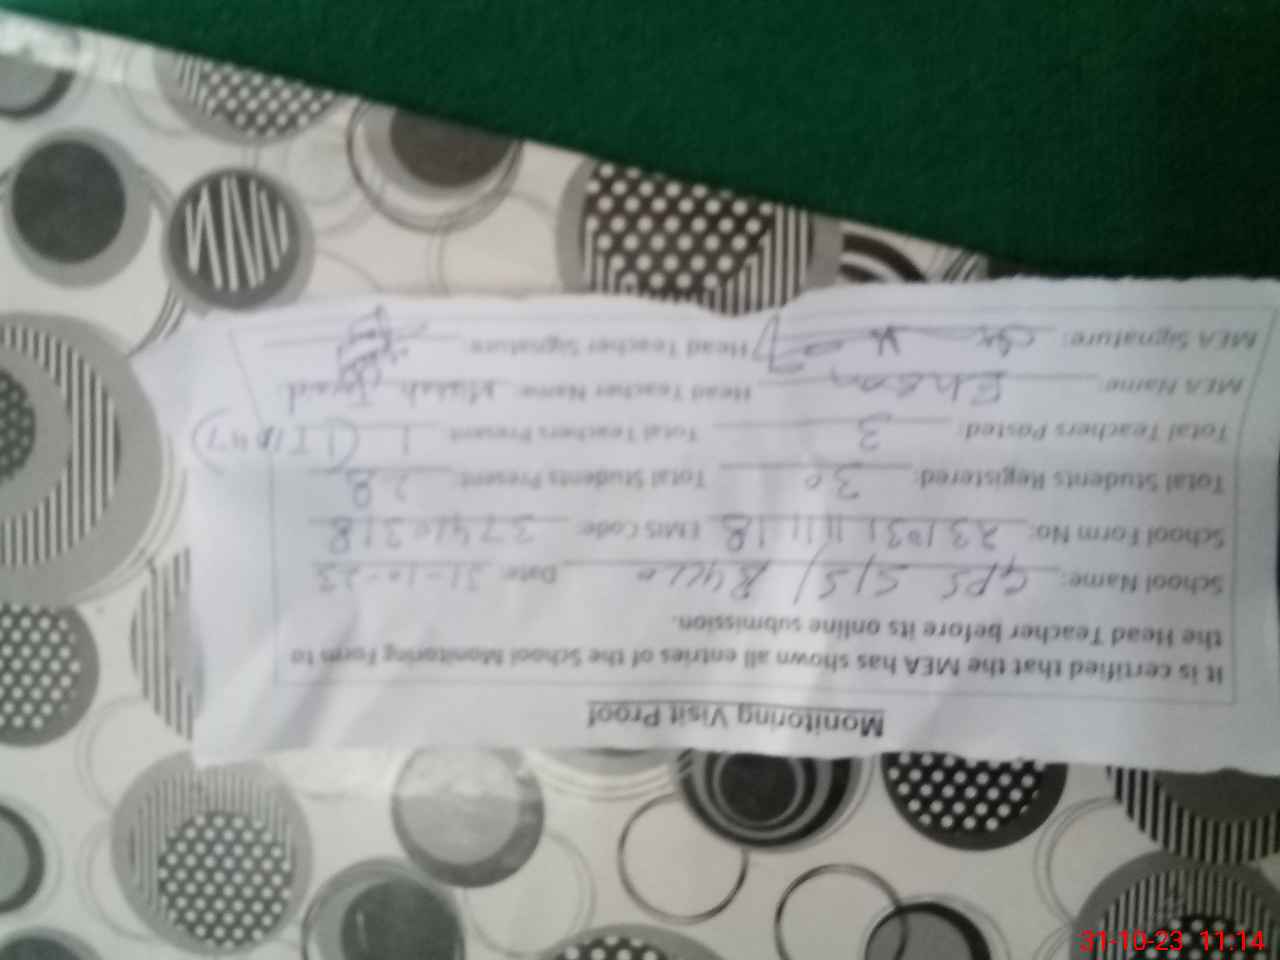 Monitoring Visit Proof
It is certified that the MEA has shown all entries of the School Monitoring Form to
the Head Teacher before its online submission.
School Name: GPS Date: 31-10-23
School Form No: 231031 1111 18 EMIS Code: 37410318
Total Students Registered: 30 Total Students Present: 28
Total Teachers Posted: 3 Total Teachers Present: 1
MEA Name: Ehsan Head Teacher Name:
MEA Signature: Head Teacher Signature:
31-10-23 11:14